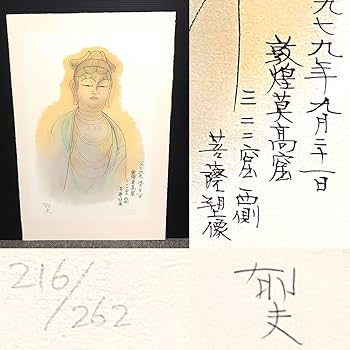 九七九年九月二十一日
敦煌莫高窟
三二二窟西側
菩薩塑像
216/262
郁夫